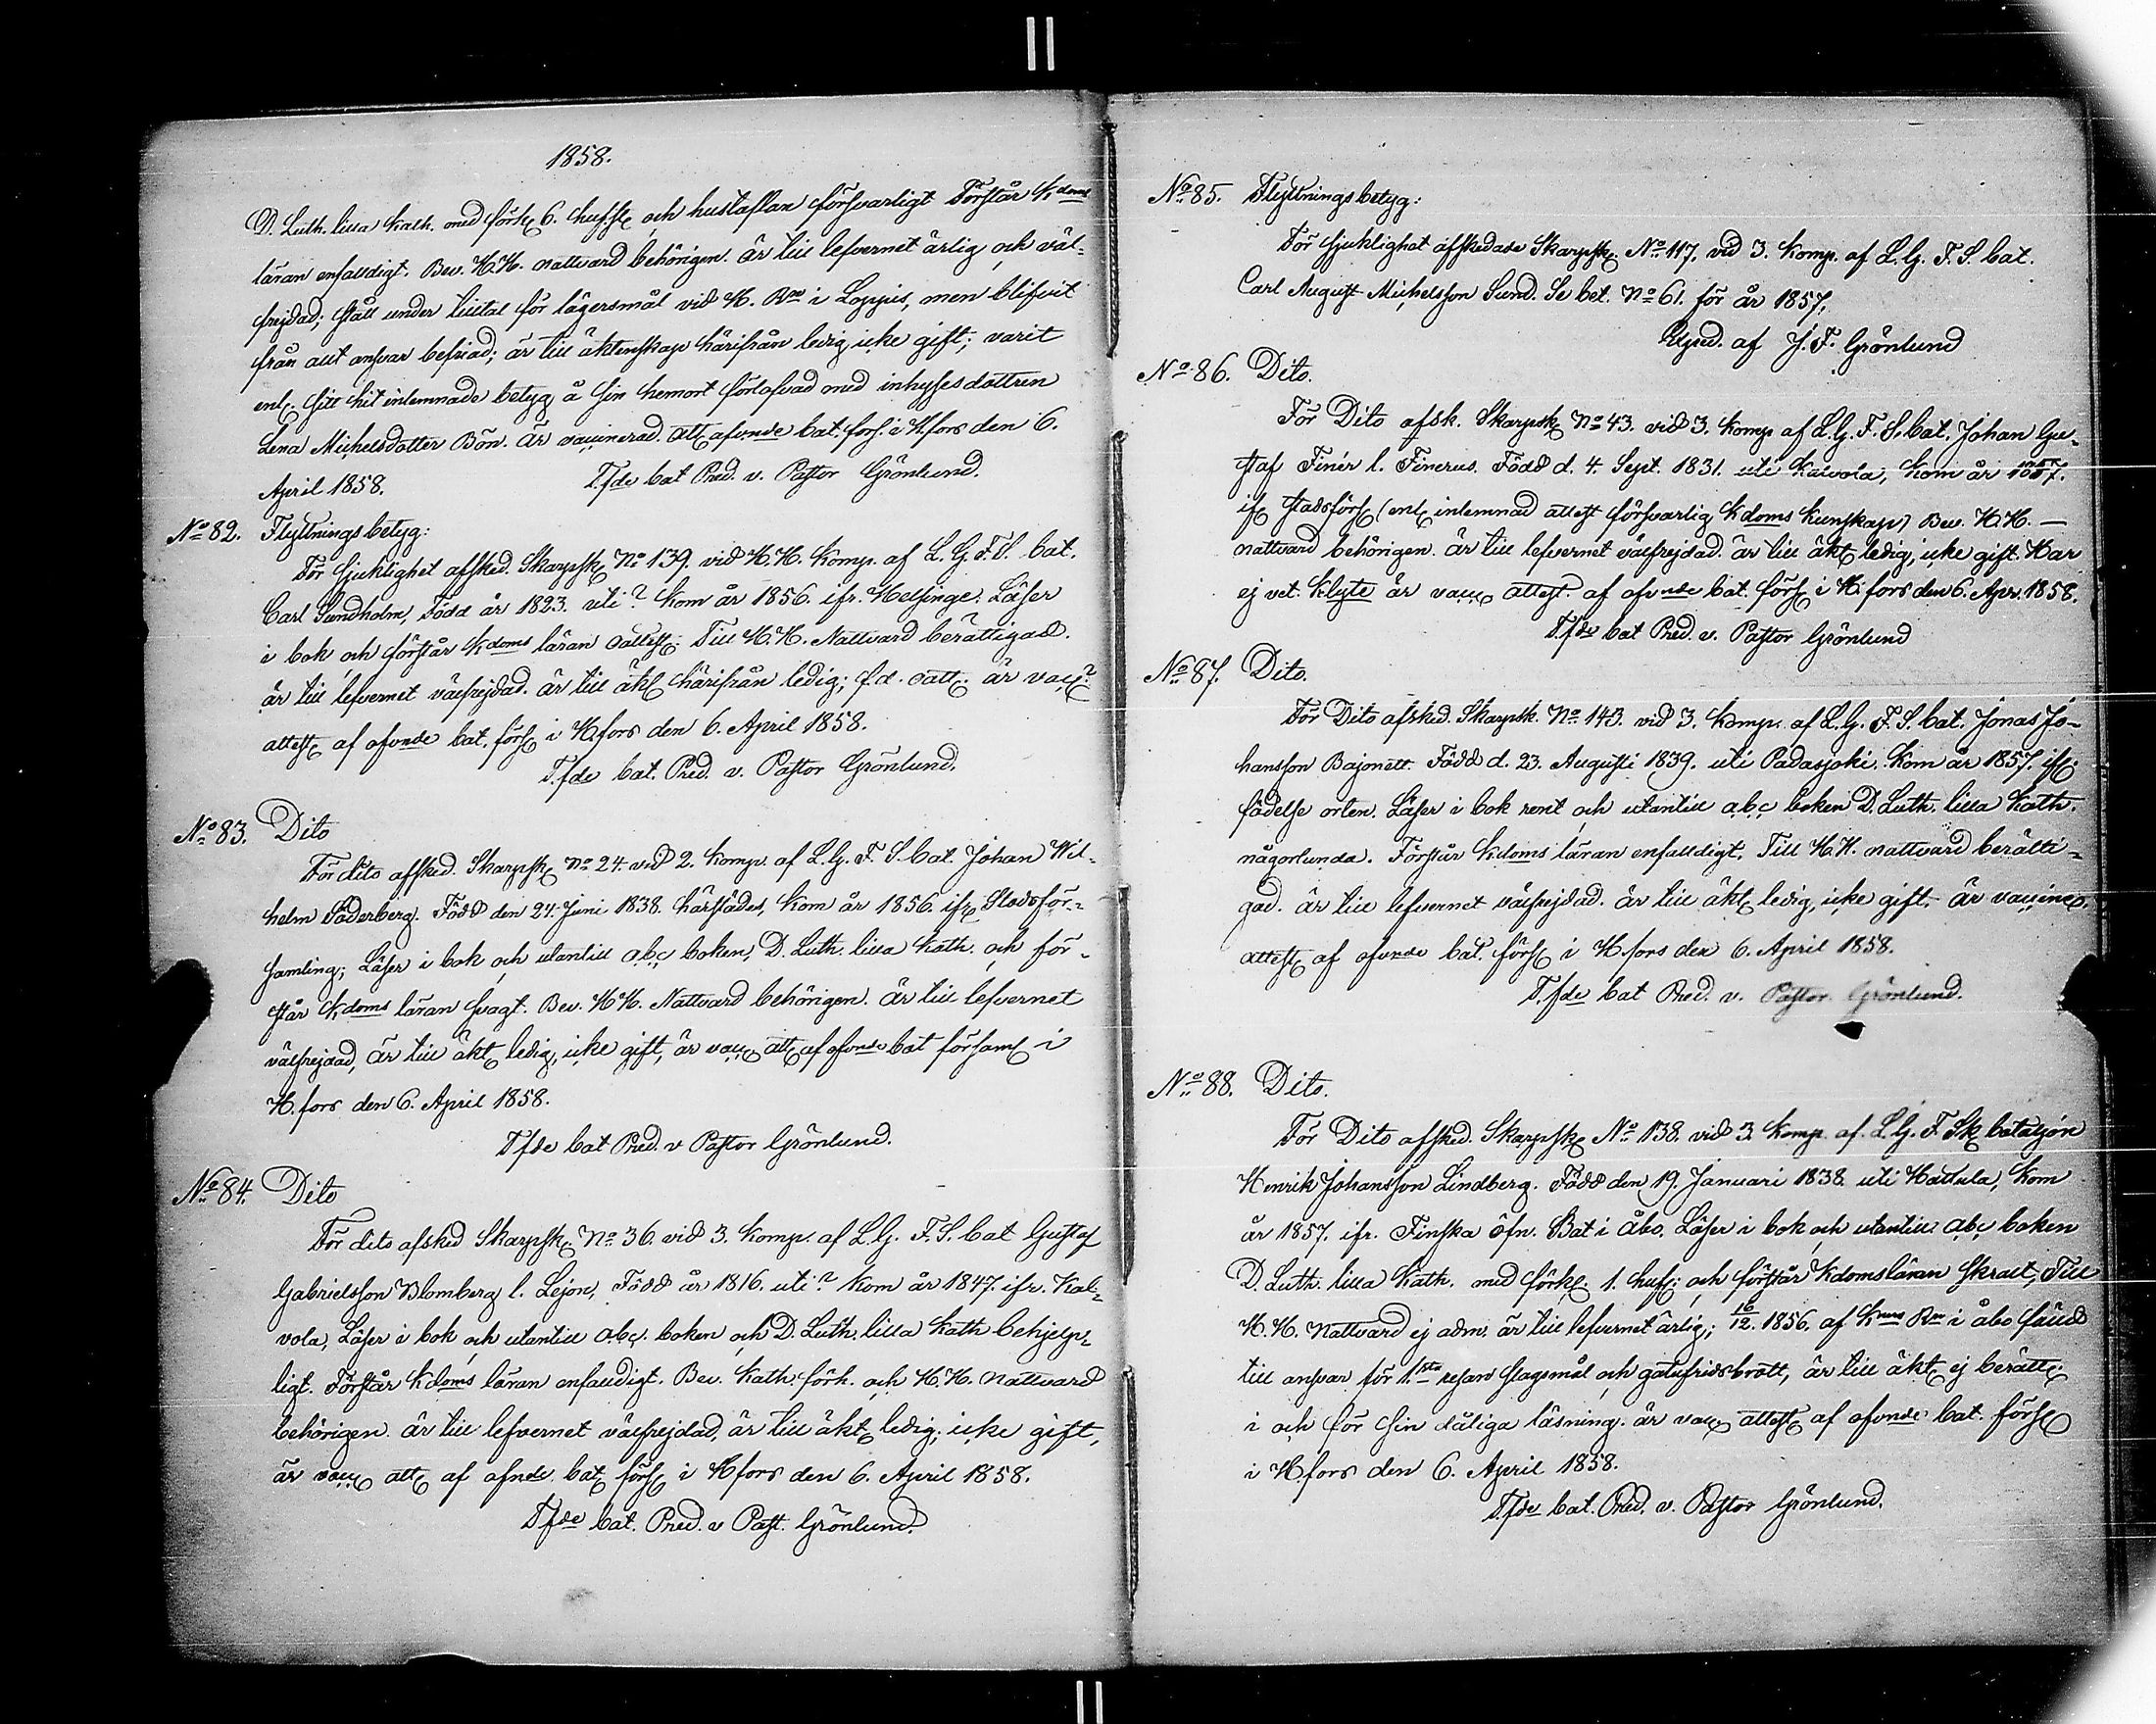 1858.
D. Luth. lilla kath. med förkl. 6. hufst. och hustaflan försvarligt Förstår Kdoms
läran enfaldigt. Bev. H.H. nattvard behörigen. är till lefvernet ärlig och väl-
frejdad; stått under tilltal för lägersmål vid H. Rn i Loppis, men blifvit
från allt ansvar befriad; är till äktenskap härifrån ledig icke gift; varit
enl. sitt hit inlemnade betyg å sin hemort förlofvad med inhysesdottren
Lena Michelsdotter Bön. är vaccinerad. att. afvnde bat. förs. i H.fors den 6.
April 1858. T.fde bat Pred. v. Pastor Grönlund.
No 82. Flyttningsbetyg:
För sjuklighet afsked. Skarpsk. No 139. vid H.H. Komp. af L. G. F. S. bat.
Carl Sundholm, Född år 1823. uti? Kom år 1856. ifr. Helsinge. Läser
i bok och förstår Kdoms läran oattest. Till H.H. Nattvard berättigad.
är till lefvernet välfrejdad. är till äkt. härifrån ledig; f.d. oatt. är vacc.?
attest. af afvnde bat. förs. i H.fors den 6. April 1858.
T.fde bat. Pred. v. Pastor Grönlund.
No 83. Dito
För dito afsked. Skarpsk. No 24. vid 2. Komp. af L. G. F. S. bat. Johan Wil-
helm Söderberg. Född den 24. Juni 1838. härstädes, Kom år 1856. ifr. Stadsför-
samling; Läser i bok och utantill abc boken, D. Luth. lilla Kath. och för-
står Kdoms läran svagt. Bev. H.H. Nattvard behörigen. är till lefvernet
välfrejdad, är till äkt. ledig, icke gift, är vacc. att. af afvnde bat församl i
H.fors den 6. April 1858.
T.fde bat Pred. v Pastor Grönlund.
No 84. Dito
För dito afsked Skarpsk. No 36. vid 3. Komp. af L. G. F. S. bat Gustaf
Gabrielsson Blomberg l. Lejon, Född år 1816. uti? Kom år 1847. ifr. Kal-
vola, Läser i bok och utantill abc. boken och D. Luth. lilla Kath behjelp-
ligt. Förstår Kdoms läran enfaldigt. Bev. Kath. förh. och H.H. nattvard
behörigen. är till lefvernet välfrejdad, är till äkt. ledig; icke gift,
är vacc. att. af afnde. bat. förs. i Hfors den 6. April 1858.
T.fde bat. Pred. v Past. Grönlund.
No 85. Flyttningsbetyg:
För sjuklighet afskedade Skarpsk. No 117. vid 3. Komp. af L. G. F. S. bat.
Carl August Michelsson Sund. Se bet. No 61. för år 1857.
af J. F. Grönlund
No 86. Dito.
För Dito afsk. Skarpsk. No 43. vid 3. Komp af L. G. F. S. bat. Johan Gu-
staf Finér l. Finerus. Född d. 4. Sept. 1831. uti Kalvola, Kom år 1857.
if. stadsförs. (enl. inlemnad attest försvarlig Kdoms Kunskap) Bev. H.H. —
nattvard behörigen. är till lefvernet välfrejdad. är till äkt. ledig, icke gift. Har
ej vet. Klyte är vacc. attest. af afvnde bat. förs. i H.fors den 6. Apr. 1858.
T.fde bat Pred. v. Pastor Grönlund
No 87. Dito.
För Dito afsked. Skarpsk. No 143. vid 3. Komp. af L. G. F. S. bat. Jonas Jo-
hansson Bajonett. Född d. 23. Augusti 1839. uti Padasjoki. Kom år 1857. if.
födelse orten. Läser i bok rent och utantill abc boken D. Luth. lilla Kath.
någorlunda. Förstår Kdoms läran enfaldigt. Till H.H. nattvard berätti-
gad. är till lefvernet välfrejdad. är till äkt. ledig, icke gift. är vaccined.
attest. af afvnde bat. förs. i H.fors den 6. April 1858.
T.fde bat Pred. v. Pastor Grönlund.
No 88. Dito.
För Dito afsked. Skarpsk. No 138. vid 3. Komp. af L. G. F. Sk. bataljon
Henrik Johansson Lindberg. Född den 19. Januari 1838 uti Hattula, Kom
år 1857. ifr. Finska öfn. Bat i Åbo, Läser i bok och utantill abc boken
D. Luth. lilla Kath. med förkl. 1. hufs. och förstår Kdomsläran skralt, Till
H.H. Nattvard ej adm. är till lefvernet ärlig; 16/12. 1856. af Kmns Rn i åbo fälld
till ansvar för 1.sta resan slagsmål och gatufridsbrott, är till äkt. ej berätt.
i och för sin dåliga läsning. är vacc. attest. af afvnde bat. förs.
i H.fors den 6. April 1858.
T.fde bat. Pred. v. Pastor Grönlund.